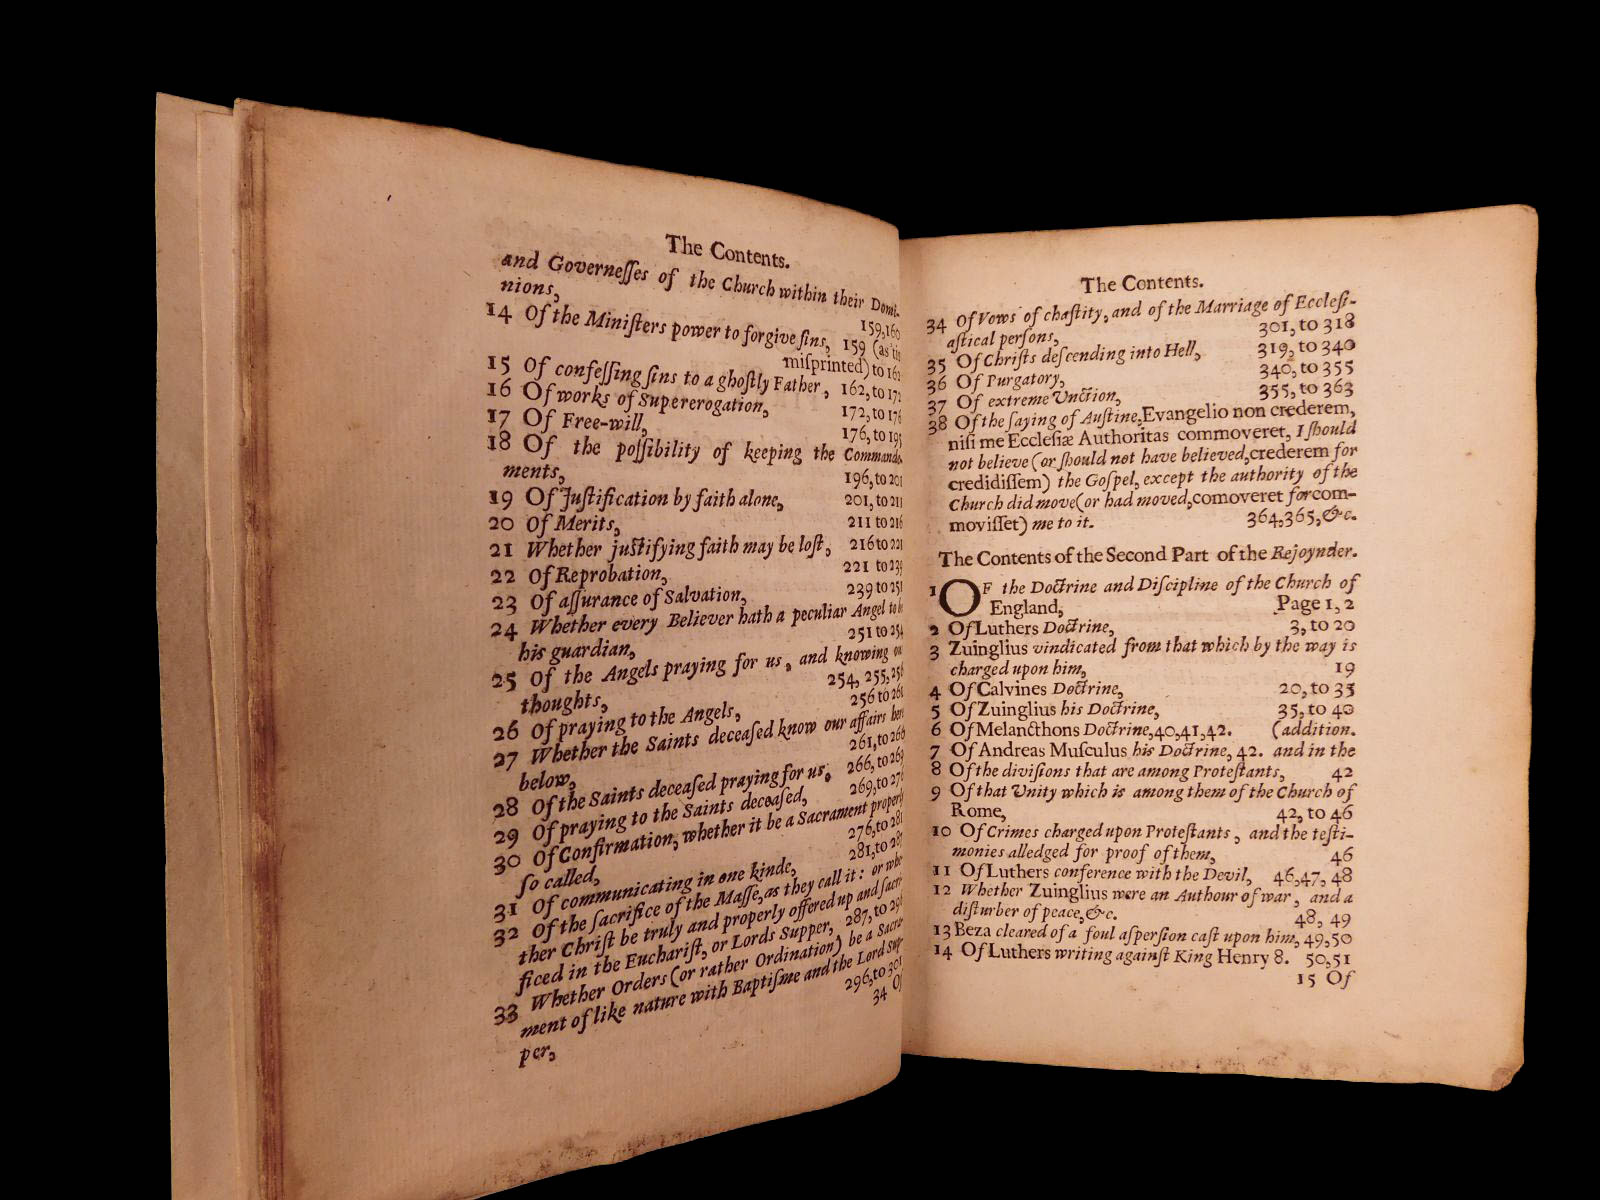 The Contents.
and Governeſſes of the Church within their Domi-
nions, 159,160
14 Of the Miniſters power to forgive ſins, 159 (as tis
miſprinted) to 162
15 Of confeſſing ſins to a ghoſtly Father, 162, to 172
16 Of works of Supererogation, 172, to 176
17 Of Free-will, 176, to 195
18 Of the poſſibility of keeping the Commande-
ments, 196, to 201
19 Of Juſtification by faith alone, 201, to 211
20 Of Merits, 211 to 216
21 Whether juſtifying faith may be loſt, 216 to 221
22 Of Reprobation, 221 to 239
23 Of aſſurance of Salvation, 239 to 251
24 Whether every Believer hath a peculiar Angel to be
his guardian, 251 to 254
25 Of the Angels praying for us, and knowing our
thoughts, 254, 255, 256
26 Of praying to the Angels, 256 to 261
27 Whether the Saints deceaſed know our affairs here
below, 261, to 266
28 Of the Saints deceaſed praying for us, 266, to 269
29 Of praying to the Saints deceaſed, 269, to 276
30 Of Confirmation, whether it be a Sacrament properly
ſo called, 276, to 281
31 Of communicating in one kinde, 281, to 287
32 Of the ſacrifice of the Maſſe, as they call it: or whe-
ther Chriſt be truly and properly offered up and ſacri-
ficed in the Euchariſt, or Lords Supper, 287, to 296
33 Whether Orders (or rather Ordination) be a Sacra-
ment of like nature with Baptiſme and the Lord Sup-
per, 296, to 301
34 Of
The Contents.
34 Of Vows of chaſtity, and of the Marriage of Eccleſi-
aſtical perſons, 301, to 318
35 Of Chriſts deſcending into Hell, 319, to 340
36 Of Purgatory, 340, to 355
37 Of extreme Unction, 355, to 363
38 Of the ſaying of Auſtine, Evangelio non crederem,
niſi me Eccleſiæ Authoritas commoveret, I ſhould
not believe (or ſhould not have believed, crederem for
credidiſſem) the Goſpel, except the authority of the
Church did move (or had moved, comoveret for com-
moviſſet) me to it. 364, 365, &c.
The Contents of the Second Part of the Rejoynder.
1 OF the Doctrine and Diſcipline of the Church of
England, Page 1, 2
2 Of Luthers Doctrine, 3, to 20
3 Zuinglius vindicated from that which by the way is
charged upon him, 19
4 Of Calvines Doctrine, 20, to 35
5 Of Zuinglius his Doctrine, 35, to 40
6 Of Melancthons Doctrine, 40, 41, 42. (addition.
7 Of Andreas Muſculus his Doctrine, 42. and in the
8 Of the diviſions that are among Proteſtants, 42
9 Of that Unity which is among them of the Church of
Rome, 42, to 46
10 Of Crimes charged upon Proteſtants, and the teſti-
monies alledged for proof of them, 46
11 Of Luthers conference with the Devil, 46, 47, 48
12 Whether Zuinglius were an Authour of war, and a
diſturber of peace, &c. 48, 49
13 Beza cleared of a foul aſperſion caſt upon him, 49, 50
14 Of Luthers writing againſt King Henry 8. 50, 51
15 Of